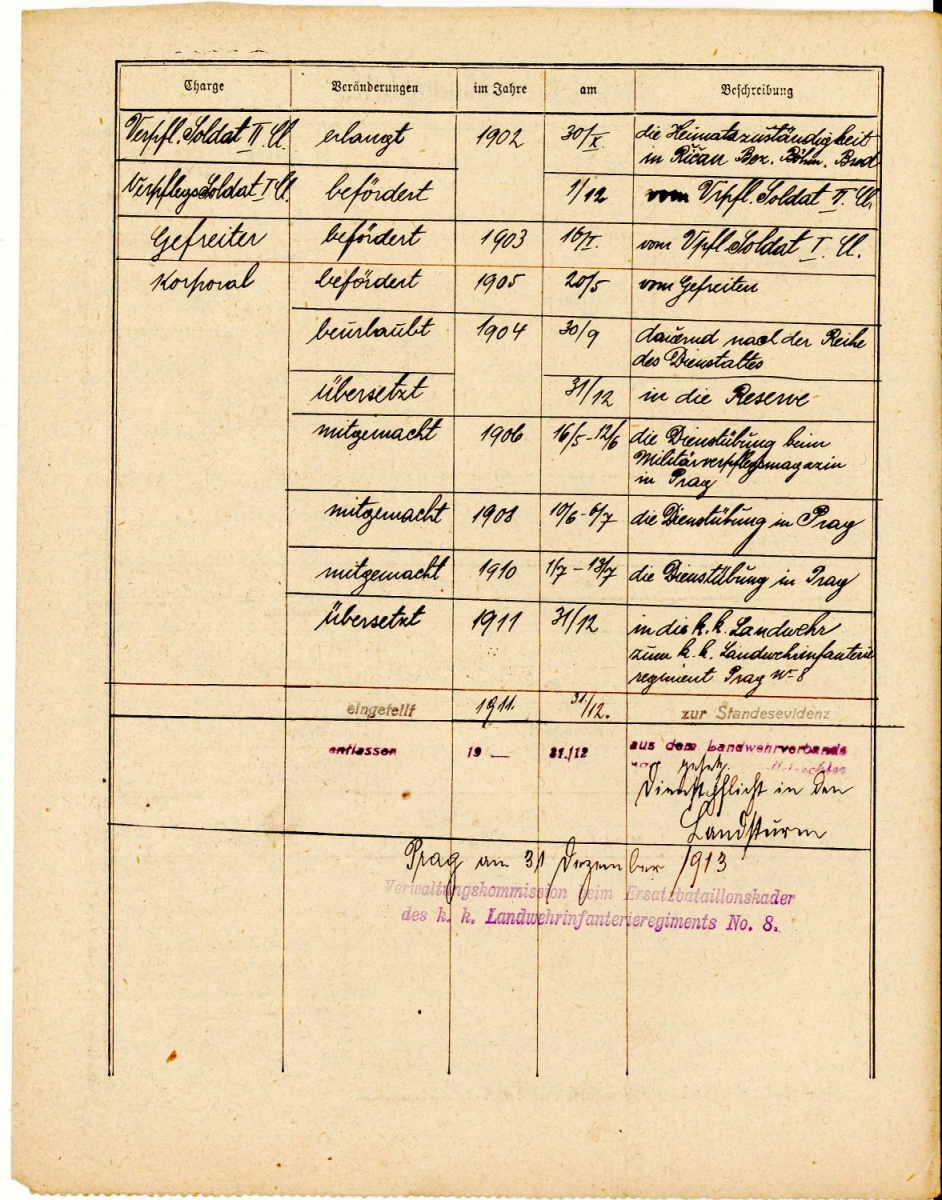 Charge Veränderungen im Jahre am Beschreibung
Verpfl. Soldat II Cl. erlangt 1902 30/X. die Heimatszuständigkeit
in Řičan Bez. Böhm. Brod
Verpflegs Soldat I Cl. befördert 1/12 vom Vrpfl. Soldat II. Cl.
Gefreiter befördert 1903 16/I. vom Vpfl. Soldat I. Cl.
Korporal befördert 1905 20/5 vom Gefreiten
beurlaubt 1904 30/9 dauernd nach der Reihe
des Dienstaltes
übersetzt 31/12 in die Reserve
mitgemacht 1906 16/5-12/6 die Dienstübung beim
Militärverpflegsmagazin
in Prag
mitgemacht 1908 10/6-6/7 die Dienstübung in Prag
mitgemacht 1910 1/7-13/7 die Dienstübung in Prag
übersetzt 1911 31/12 in die k. k. Landwehr
zum k. k. Landwehrinfanterie
regiment Prag No 8
eingeteilt 1911. 31./12. zur Standesevidenz
entlassen 19 — 31./12 aus dem Landwehrverbande
gesetz.
Dienstpflicht in den
Landsturm
Prag am 31 Dezember 1913
Verwaltungskommission beim Ersatzbataillonskader
des k. k. Landwehrinfanterieregiments No. 8.